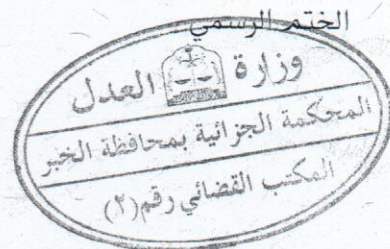 الختم الرسمي
وزارة العدل
المحكمة الجزائية بمحافظة الخبر
المكتب القضائي رقم (٢)